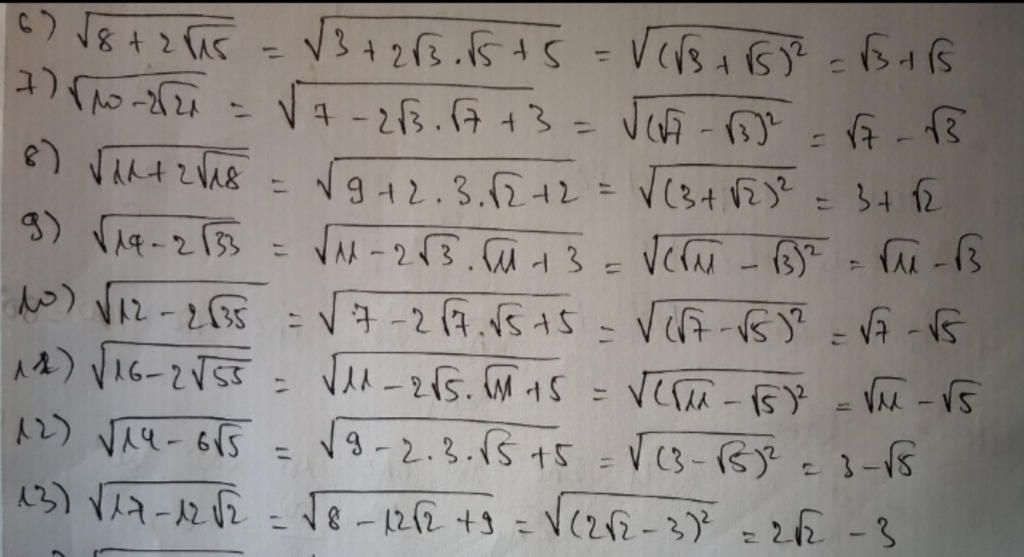 6) √(8 + 2√15) = √(3 + 2√3 . √5 + 5) = √((√3 + √5)²) = √3 + √5
7) √(10 - 2√21) = √(7 - 2√3 . √7 + 3) = √((√7 - √3)²) = √7 - √3
8) √(11 + 2√18) = √(9 + 2 . 3 . √2 + 2) = √((3 + √2)²) = 3 + √2
9) √(14 - 2√33) = √(11 - 2√3 . √11 + 3) = √((√11 - √3)²) = √11 - √3
10) √(12 - 2√35) = √(7 - 2√7 . √5 + 5) = √((√7 - √5)²) = √7 - √5
11) √(16 - 2√55) = √(11 - 2√5 . √11 + 5) = √((√11 - √5)²) = √11 - √5
12) √(14 - 6√5) = √(9 - 2 . 3 . √5 + 5) = √((3 - √5)²) = 3 - √5
13) √(17 - 12√2) = √(8 - 12√2 + 9) = √((2√2 - 3)²) = 2√2 - 3